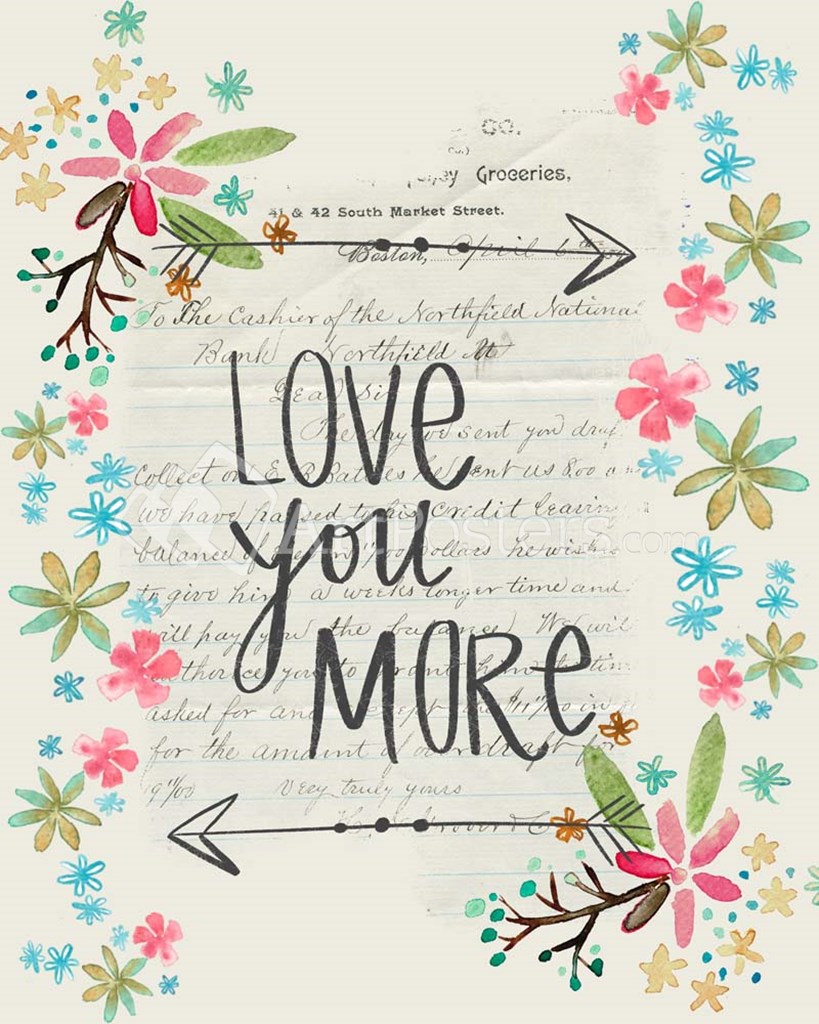 Co.
Groceries,
41 & 42 South Market Street.
Boston, April 6th
To The Cashier of the Northfield National
Bank Northfield
Dear Sir
The day we sent you draft
LOVE
collect on E R Bates he sent us 800
we have passed to his Credit leaving
you
ArtPosters.com
balance of Dollars he wishes
to give him a weeks longer time and
will pay you the balance We will
MORE
authorize you to grant him time
asked for and in
for the amount of overdraft for
Very truly yours